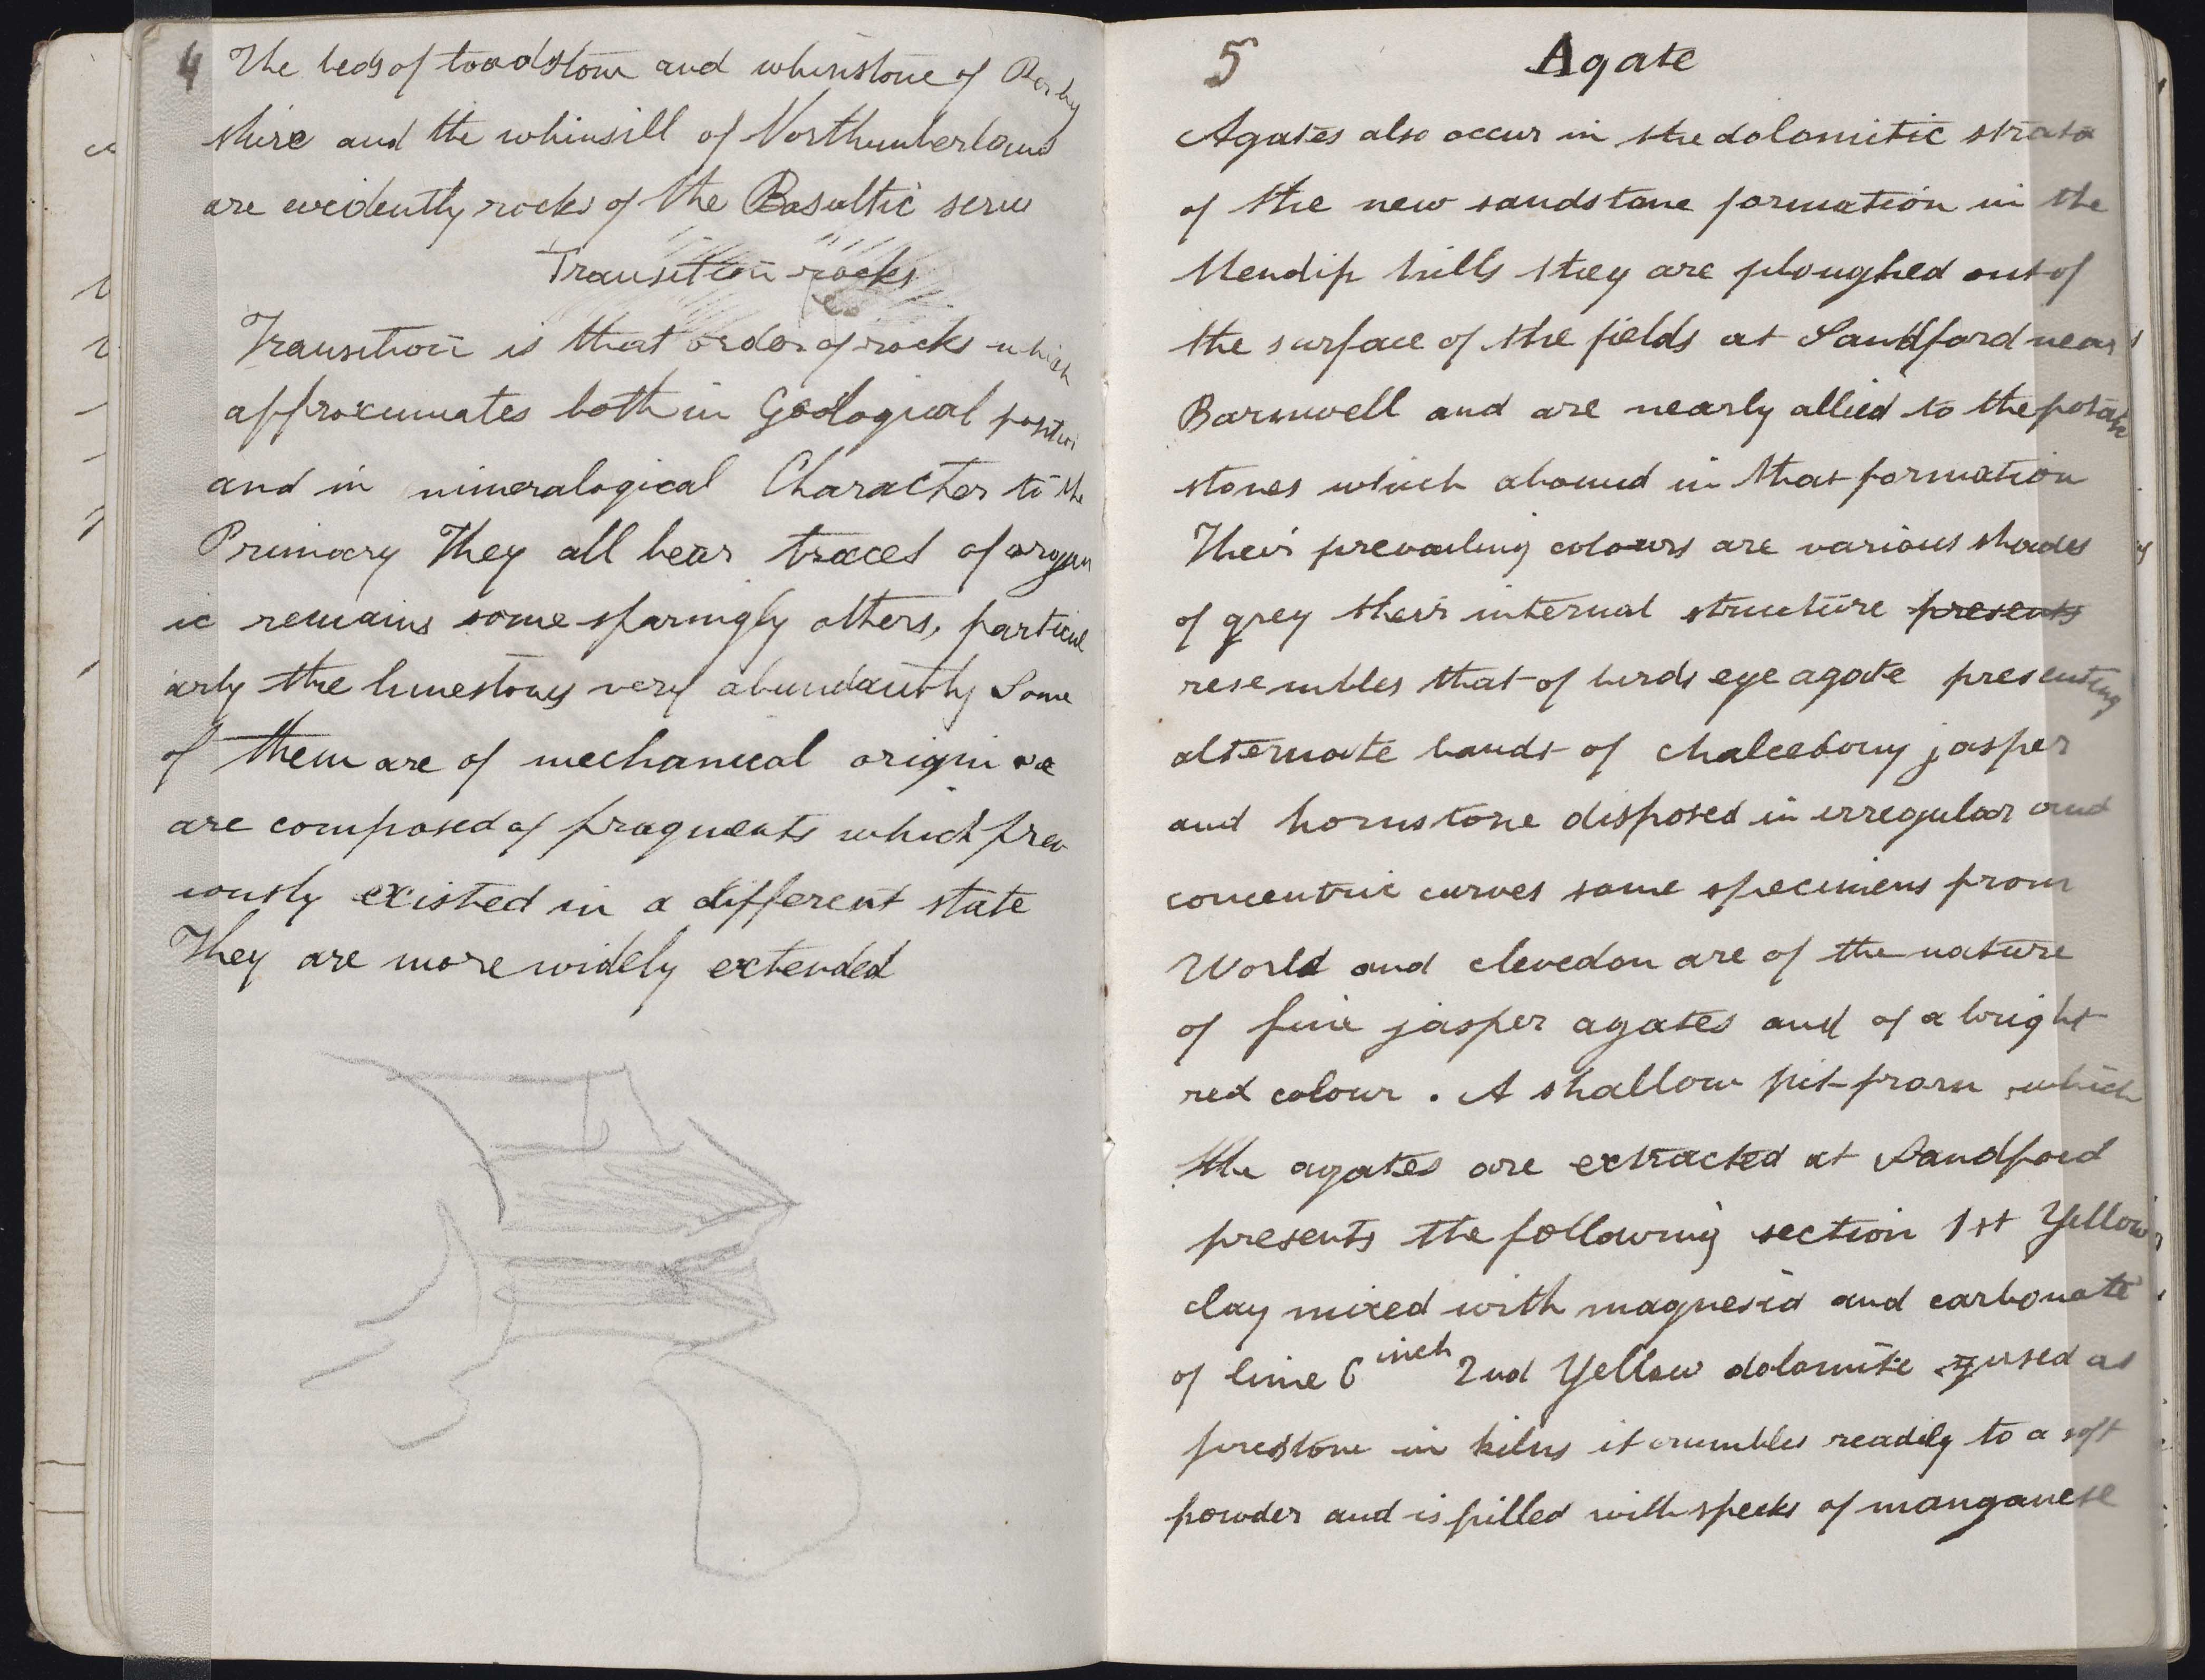 4
The beds of toadstone and whinstone of Derby
shire and the whinsill of Northumberland
are evidently rocks of the Basaltic series
Transition rocks
Transition is that order of rocks which
approximates both in Geological position
and in mineralogical Character to the
Primary They all bear traces of organ
ic remains some sparingly others, particul
arly the limestones very abundantly Some
of them are of mechanical origin
are composed of fragments which prev
iously existed in a different state
They are more widely extended
5
Agate
Agates also occur in the dolomitic strata
of the new sandstone formation in the
Mendip hills they are ploughed out of
the surface of the fields at Sandford near
Barnwell and are nearly allied to the potatoe
stones which abound in that formation
Their prevailing colours are various shades
of grey their internal structure presents
resembles that of birds eye agate presenting
alternate bands of chalcedony jasper
and hornstone disposed in irregular and
concentric curves some specimens from
World and clevedon are of the nature
of fine jasper agates and of a bright
red colour. A shallow pit from which
the agates are extracted at Sandford
presents the following section 1st Yellow
clay mixed with magnesia and carbonate
of lime 6 inch 2nd Yellow dolomite used as
firestone in kilns it crumbles readily to a soft
powder and is filled with specks of manganese